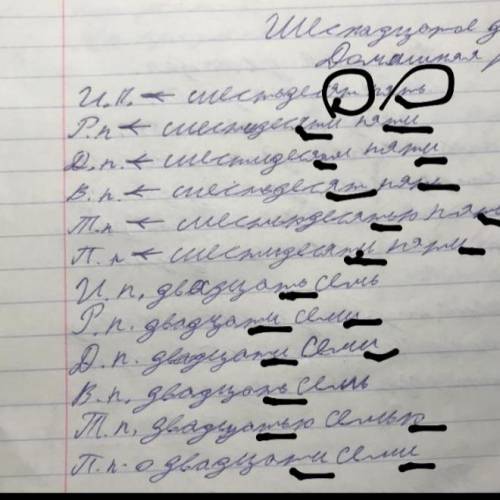 Шестнадцатое д
Домашная р
И.п. ← шестьдесят пять
Р.п ← шестидесяти пяти
Д.п. ← шестидесяти пяти
В.п. ← шестьдесят пять
Т.п ← шестьюдесятью пять
П.п ← шестидесяти пяти
И.п, двадцать семь
Р.п. двадцати семи
Д.п. двадцати семи
В.п, двадцать семь
Т.п, двадцатью семью
П.п. о двадцати семи